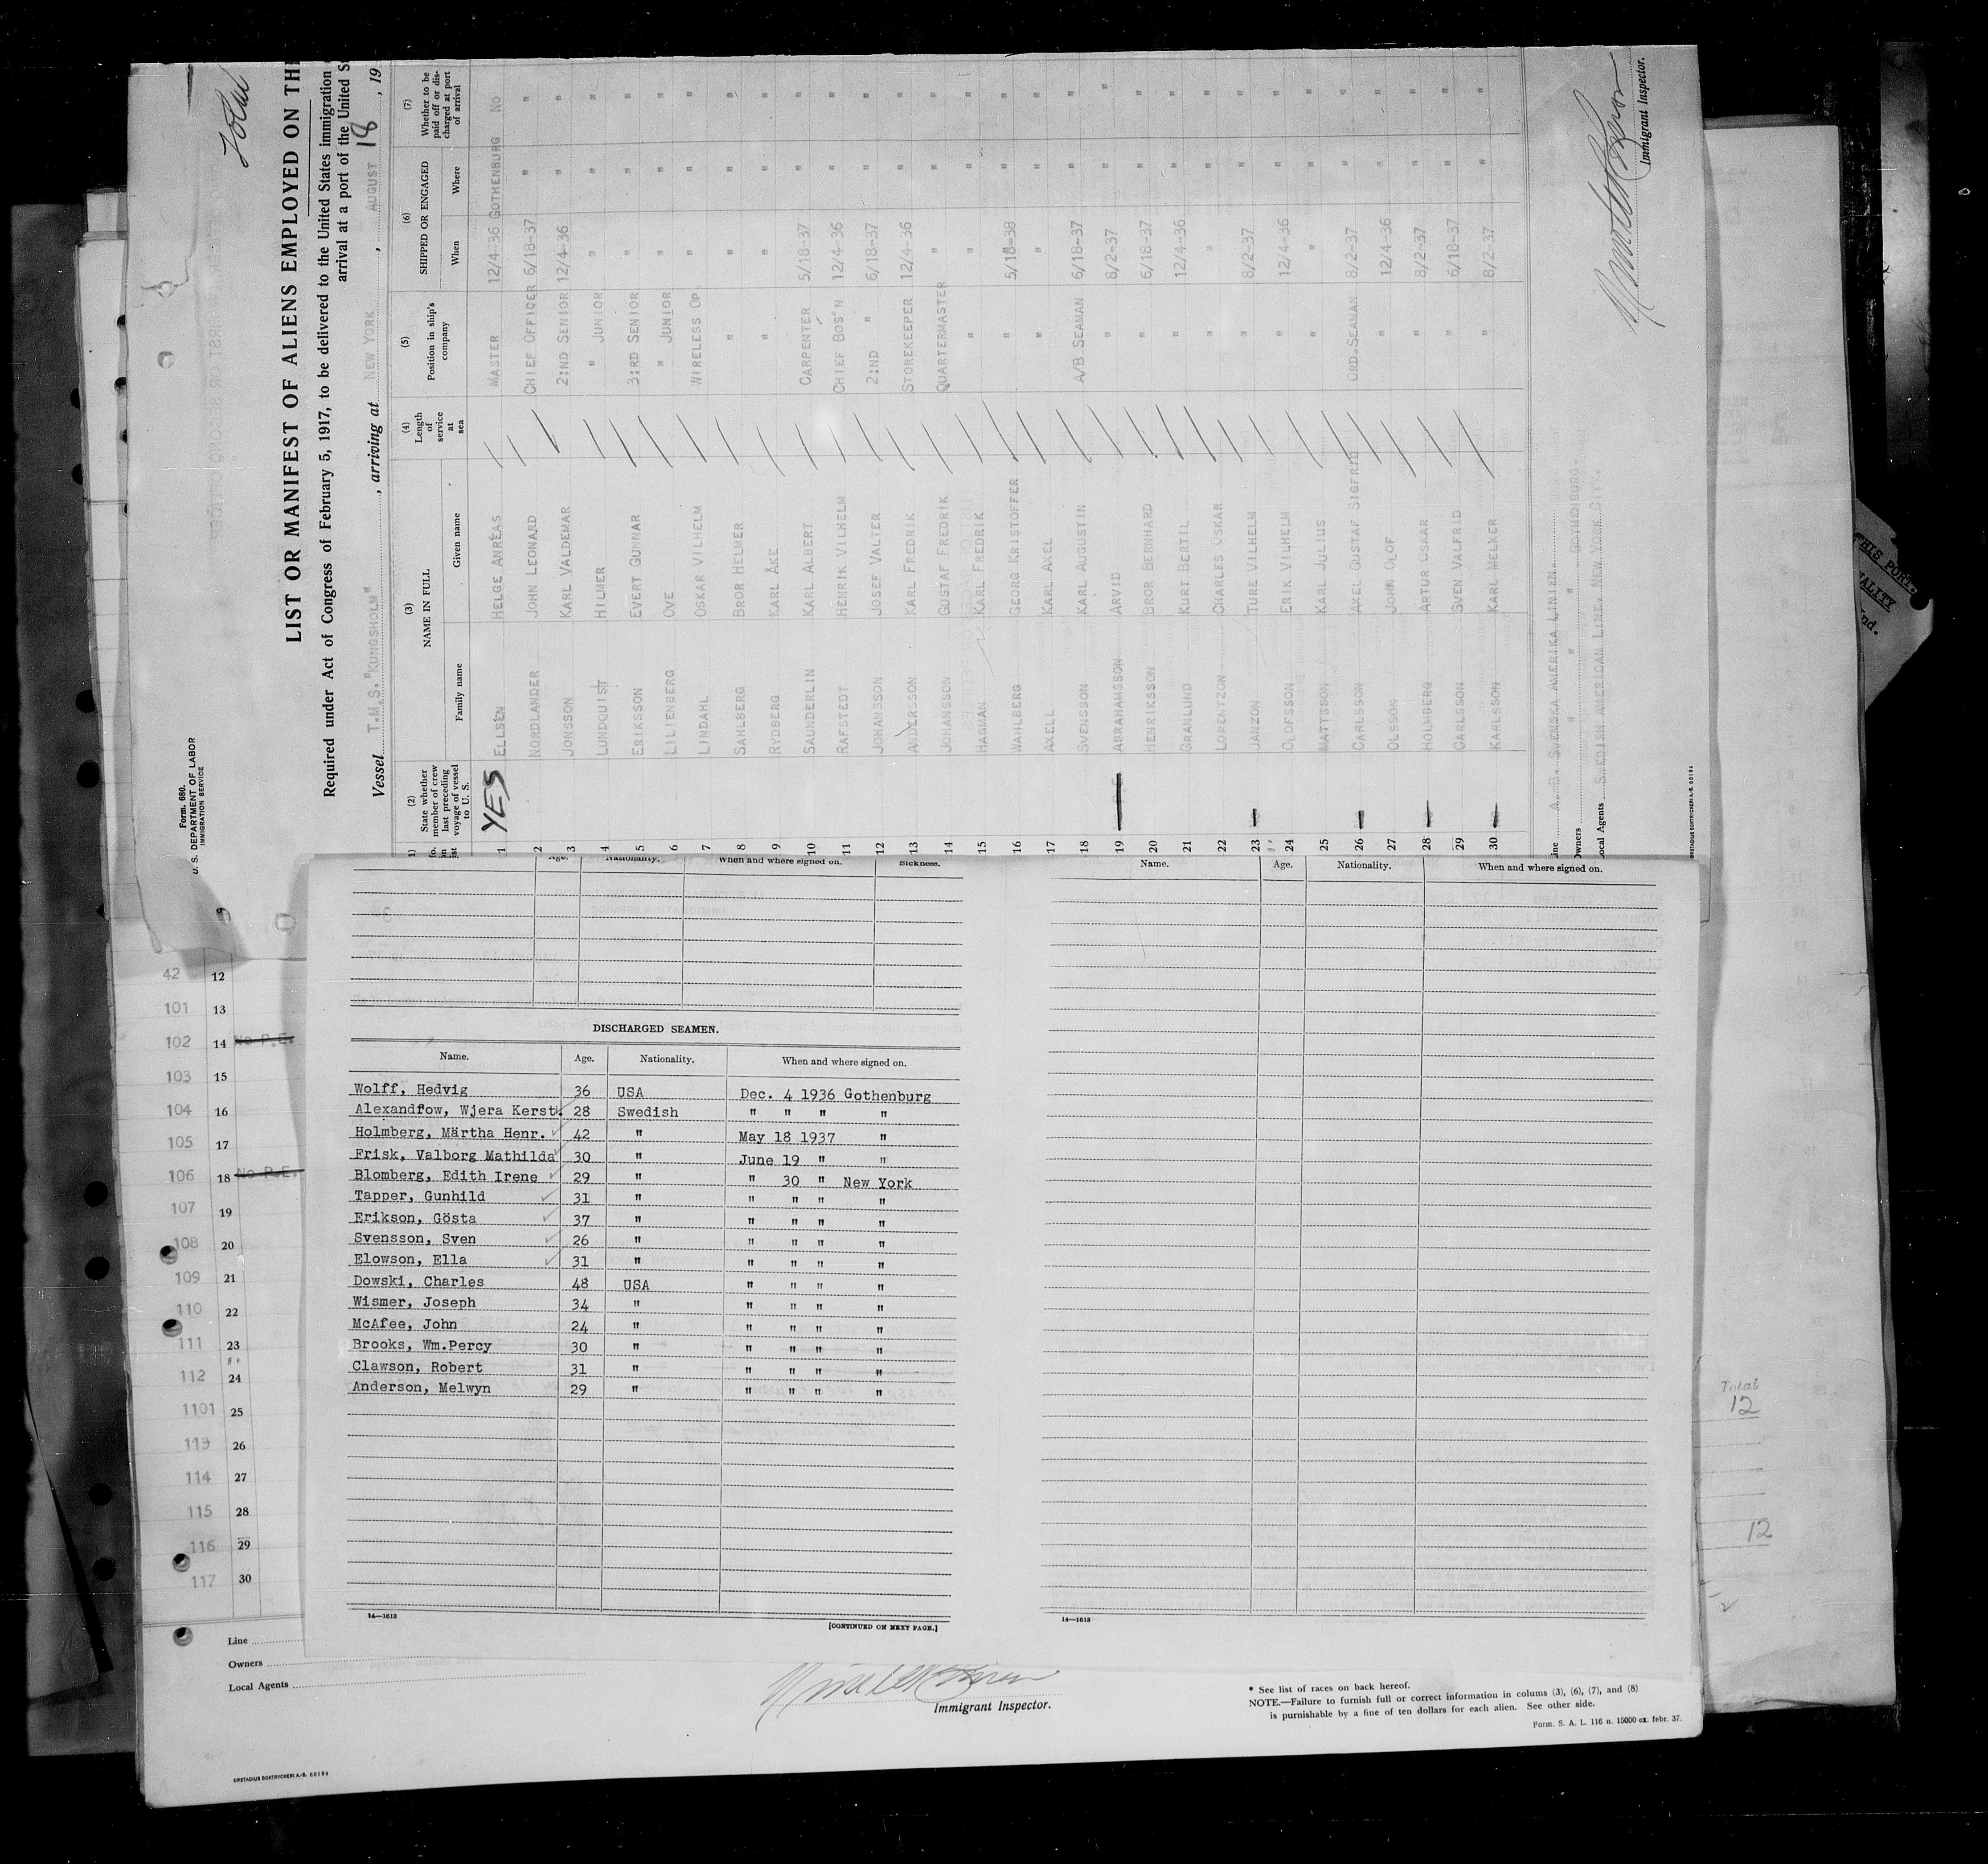 Form 680.
U. S. DEPARTMENT OF LABOR
IMMIGRATION SERVICE
LIST OR MANIFEST OF ALIENS EMPLOYED ON THE
Required under Act of Congress of February 5, 1917, to be delivered to the United States immigration
arrival at a port of the United St
Vessel T.M.S."KUNGSHOLM", arriving at NEW YORK, AUGUST 18, 19
(2) State whether member of crew last preceding voyage of vessel to U. S.
(3) NAME IN FULL
Family name Given name
(4) Length of service at sea
(5) Position in ship's company
(6) SHIPPED OR ENGAGED
When Where
(7) Whether to be paid off or discharged at port of arrival
1 YES ELLSEN HELGE ANREAS MASTER 12/4-36 GOTHENBURG NO
2 NORDLANDER JOHN LEONARD CHIEF OFFICER 6/18-37 " "
3 JONSSON KARL VALDEMAR 2:ND SENIOR 12/4-36 " "
4 LUNDQUIST HILMER " JUNIOR " " "
5 ERIKSSON EVERT GUNNAR 3:RD SENIOR " " "
6 LILIENBERG OVE " JUNIOR " " "
7 LINDAHL OSKAR VILHELM WIRELESS OP. " " "
8 SAHLBERG BROR HELMER " " " "
9 RYDBERG KARL ÅKE " " " "
10 SAUNDERLIN KARL ALBERT CARPENTER 5/18-37 " "
11 RAFSTEDT HENRIK VILHELM CHIEF BOS'N 12/4-36 " "
12 JOHANSSON JOSEF VALTER 2:ND " 6/18-37 " "
13 ANDERSSON KARL FREDRIK STOREKEEPER 12/4-36 " "
14 JOHANSSON GUSTAF FREDRIK QUARTERMASTER " " "
15 HAGMAN KARL FREDRIK " " " "
16 WAHLBERG GEORG KRISTOFFER " 5/18-38 " "
17 AXELL KARL AXEL " " " "
18 SVENSSON KARL AUGUSTIN A/B SEAMAN 6/18-37 " "
19 ABRAHAMSSON ARVID " 8/2-37 " "
20 HENRIKSSON BROR BERNHARD " 6/18-37 " "
21 GRANLUND KURT BERTIL " 12/4-36 " "
22 LORENTZON CHARLES OSKAR " " " "
23 JANZON TURE VILHELM " 8/2-37 " "
24 OLOFSSON ERIK VILHELM " 12/4-36 " "
25 MATTSSON KARL JULIUS " " " "
26 CARLSSON AXEL GUSTAF SIGFRID ORD.SEAMAN 8/2-37 " "
27 OLSSON JOHN OLOF " 12/4-36 " "
28 HOLMBERG ARTUR OSKAR " 8/2-37 " "
29 CARLSSON SVEN VALFRID " 6/18-37 " "
30 KARLSSON KARL MELKER " 8/2-37 " "
Line A. B. SVENSKA AMERIKA LINIEN.
Owners " " " GOTHENBURG.
Local Agents SWEDISH AMERICAN LINE, NEW YORK CITY.
Immigrant Inspector.
THIS PORT.
Age. Nationality. When and where signed on. Sickness.
Name. Age. Nationality. When and where signed on.
DISCHARGED SEAMEN.
Name. Age. Nationality. When and where signed on.
Wolff, Hedvig 36 USA Dec. 4 1936 Gothenburg
Alexandfow, Wjera Kerst 28 Swedish " " " "
Holmberg, Märtha Henr. 42 " May 18 1937 "
Frisk, Valborg Mathilda 30 " June 19 " "
Blomberg, Edith Irene 29 " " 30 " New York
Tapper, Gunhild 31 " " " " "
Erikson, Gösta 37 " " " " "
Svensson, Sven 26 " " " " "
Elowson, Ella 31 " " " " "
Dowski, Charles 48 USA " " " "
Wismer, Joseph 34 " " " " "
McAfee, John 24 " " " " "
Brooks, Wm.Percy 30 " " " " "
Clawson, Robert 31 " " " " "
Anderson, Melwyn 29 " " " " "
14—1613
[CONTINUED ON NEXT PAGE.]
14—1613
42 12
101 13
102 14 No P.E.
103 15
104 16
105 17
106 18 No P.E.
107 19
108 20
109 21
110 22
111 23
112 24
1101 25
113 26
114 27
115 28
116 29
117 30
Total
12
12
Line
Owners
Local Agents
Immigrant Inspector.
* See list of races on back hereof.
NOTE.—Failure to furnish full or correct information in colums (3), (6), (7), and (8)
is purnishable by a fine of ten dollars for each alien. See other side.
Form. S. A. L. 116 n. 15000 ex. febr. 37.